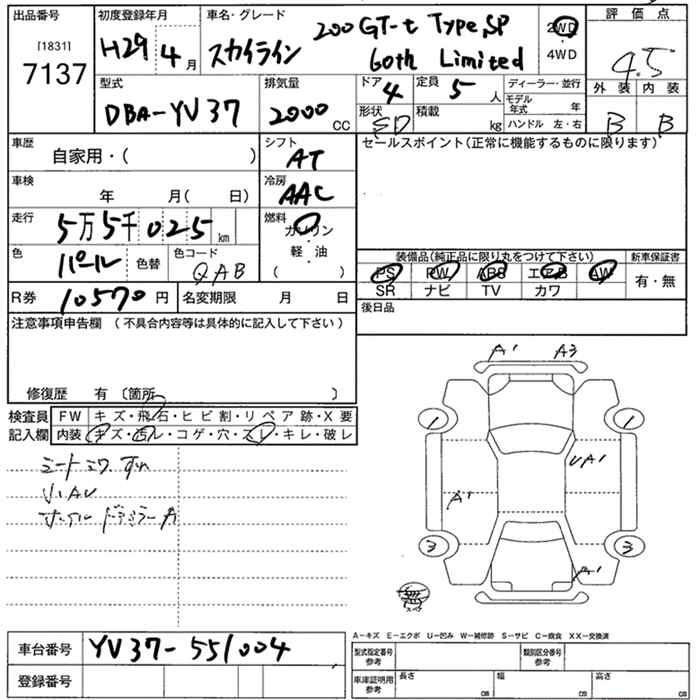 出品番号 初度登録年月 車名・グレード 評価点
[1831]
7137
H29 4 月 スカイライン 200GT-t Type SP
60th Limited
2WD
4WD
4.5
型式 排気量 ドア 定員 ディーラー・並行 外装 内装
DBA-YV37 2000 CC 4 5 人 モデル年式 年
形状 積載 ハンドル 左・右
SD kg B B
車歴 シフト セールスポイント(正常に機能するものに限ります)
自家用・( ) AT
車検 冷房
年 月( 日) AAC
走行 燃料
5万5千025 km ガソリン
軽・油
( )
色 色替 色コード 装備品(純正品に限り丸をつけて下さい) 新車保証書
パール QAB PS PW ABS エアB AW 有・無
SR ナビ TV カワ
R券 10570 円 名変期限 月 日 後日品
注意事項申告欄 (不具合内容等は具体的に記入して下さい)
修復歴 有 (箇所 )
検査員 FW キズ・飛石・ヒビ割・リペア跡・X要
記入欄 内装 キズ・汚レ・コゲ・穴・スレ・キレ・破レ
A' A3
1 1
UA'
A'
3 3
A'
シート シワ すれ
A-キズ E-エクボ U-凹み W-補修跡 S-サビ C-腐食 XX-交換済
車台番号 YV37-551004
型式指定番号 参考 類別区分番号 参考
登録番号 車庫証明用 参考 長さ cm 幅 cm 高さ cm